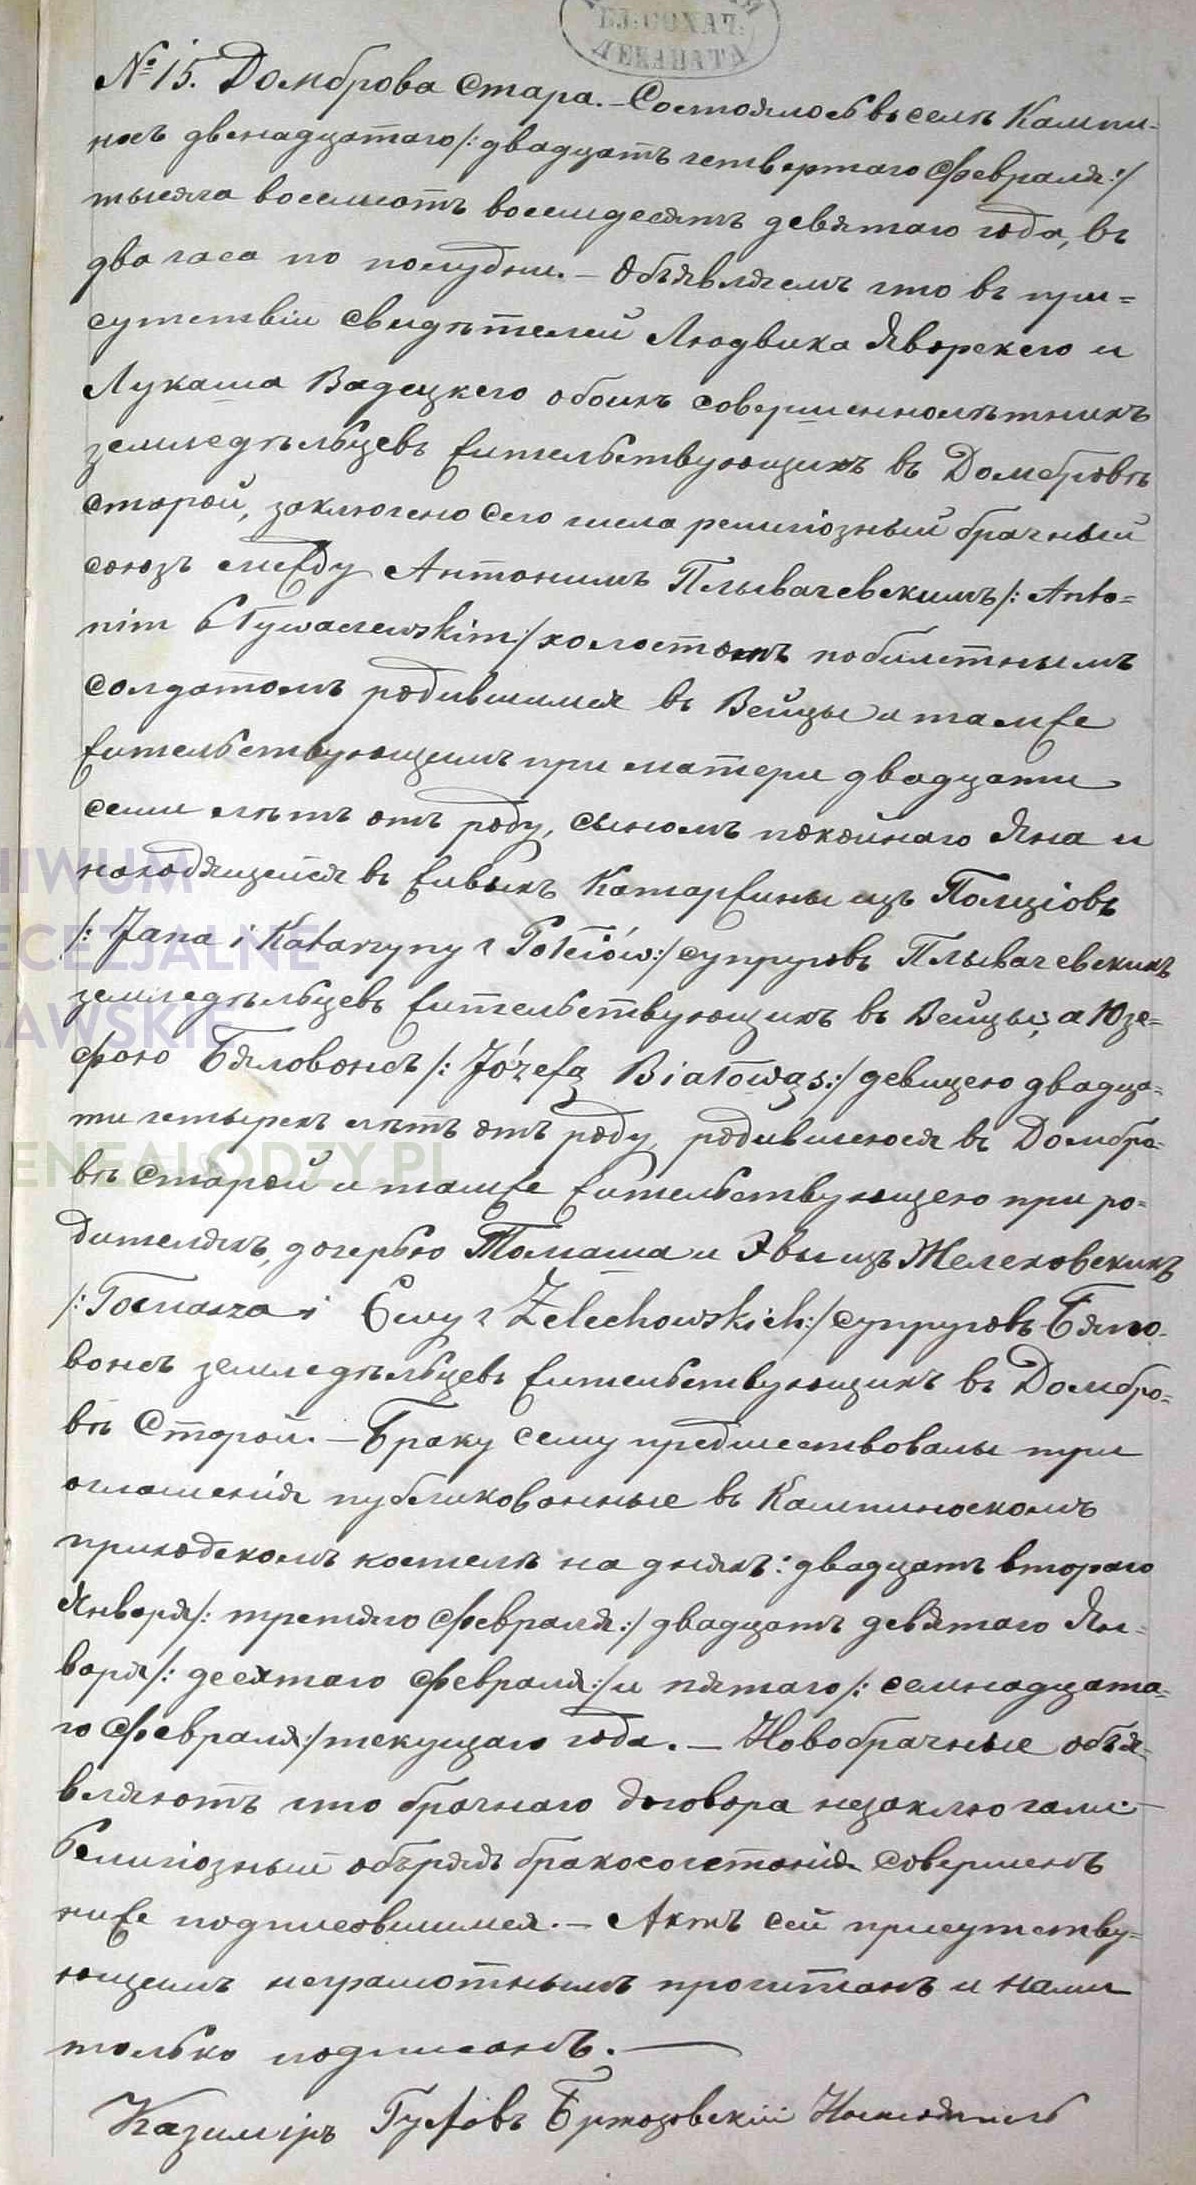 БЛ: СОХАЧ:
ДЕКАНАТА
№ 15. Домброва Стара. — Состоялось въ селѣ Кампи-
носъ двенадцатаго /: двадцать четвертаго Февраля :/
тысяча восемьсотъ восемдесятъ девятаго года, въ
два часа по полудни. — Объявляемъ что въ при=
сутствіи свидѣтелей Людвика Яворскего и
Лукаша Вадецкего обоихъ совершеннолѣтнихъ
земледѣльцевъ жительствующихъ въ Домбровѣ
старой, заключено сего числа религіозный брачный
союзъ между Антонимъ Плывачевскимъ /: Anto=
nim Pływaczewskim :/ холостомъ побилетнымъ
солдатомъ родившимся въ Вейцы и тамже
жительствующимъ при матери двадцати
семи лѣтъ отъ роду, сыномъ покойнаго Яна и
находящейся въ живыхъ Катаржины изъ Полціовъ
/: Jana i Katarzyny z Połciów :/ супруговъ Плывачевскихъ
земледѣльцевъ жительствующихъ въ Вейцы; а Юзе=
фою Бяловонсъ /: Józefą Białowąs :/ девицею двадца-
ти четырехъ лѣтъ отъ роду, родившеюся въ Домбро-
вѣ Старой и тамже жительствующею при ро=
дителяхъ, дочерью Томаша и Эвы изъ Желеховскихъ
/: Tomasza i Ewy z Żelechowskich :/ супруговъ Бяло-
вонсъ земледѣльцевъ жительствующихъ въ Домбро-
вѣ Старой. — Браку сему предшествовалы три
оглашенія публикованные въ Кампиноскомъ
приходскомъ костелѣ на дняхъ: двадцать втораго
Января /: третяго Февраля :/ двадцать девятаго Ян-
варя /: десятаго Февраля :/ и пятаго /: семнадцата-
го Февраля :/ текущаго года. — Новобрачные объя-
вляютъ что брачнаго договора незаключали —
Религіозный обърядъ бракосочетанія совершенъ
ниже подписовшимся. — Актъ сей присутству=
ющимъ неграмотнымъ прочитанъ и нами
только подписанъ. —
Казимиръ Гусовъ Бржозовскій Настоятель
ARCHIWUM
DIECEZJALNE
WARSZAWSKIE
GENEALODZY.PL